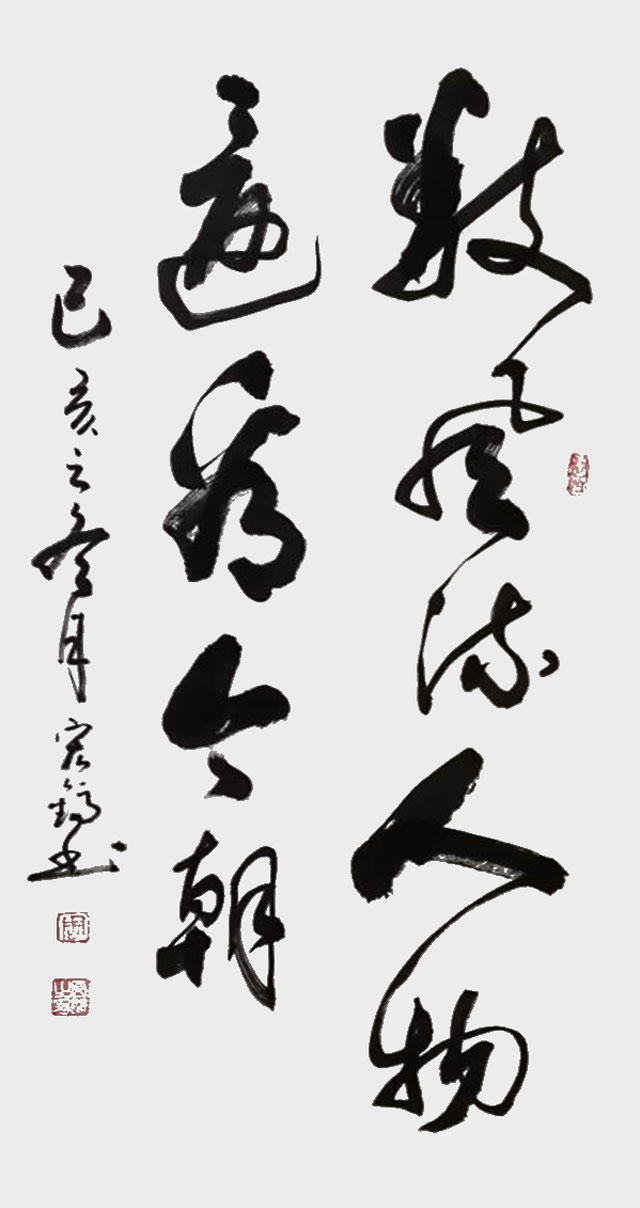 数风流人物
還看今朝
己亥之冬月宏书